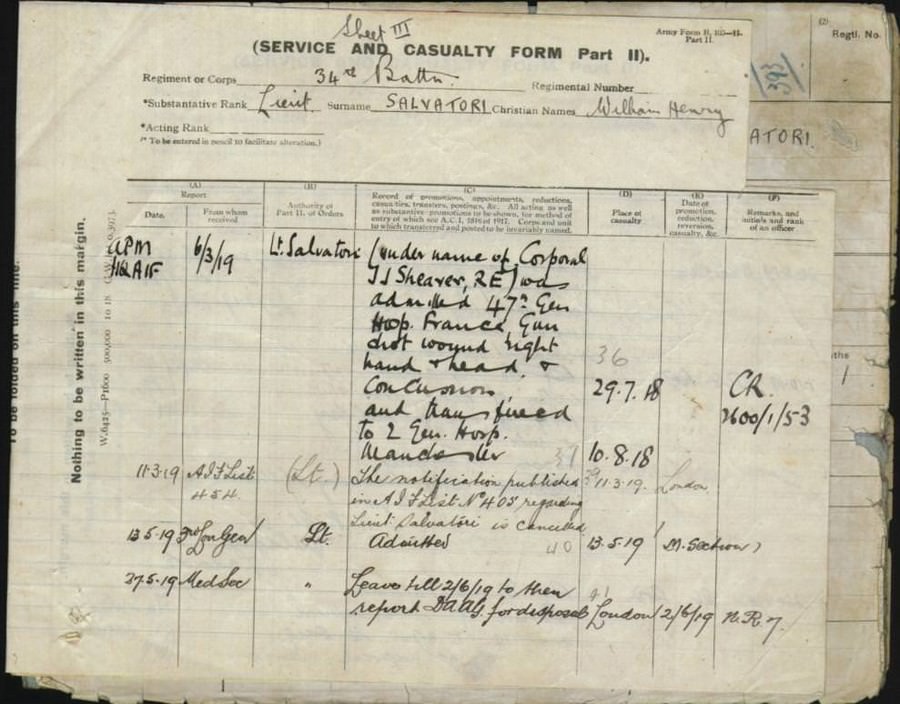 Sheet III
(SERVICE AND CASUALTY FORM Part II).
Army Form B. 103—II.
Part II.
Regiment or Corps 34th Battn. Regimental Number
*Substantative Rank Lieut Surname SALVATORI Christian Names William Henry
*Acting Rank
(* To be entered in pencil to facilitate alteration.)
(2)
Regtl. No.
393
ATORI.
ths
1
To be folded on this line.
Nothing to be written in this margin.
(A) (B) (C) (D) (E) (F)
Report
Date. From whom received
Authority of Part II. of Orders
Record of promotions, appointments, reductions,
casualties, transfers, postings, &c. All acting as well
as substantive promotions to be shown, for method of
entry of which see A.C.I. 1816 of 1917. Corps and unit
to which transferred and posted to be invariably named.
Place of casualty
Date of promotion, reduction, reversion, casualty, &c.
Remarks, and initials and rank of an officer
APM 6/3/19 Lt. Salvatori (under name of Corporal
HQ AIF JJ Shearer, RE) was
admitted 47th Gen
Hosp. France, Gun
shot wound right 36
hand & head, &
Concussion 29.7.18 CR.
and transferred 2600/1/53
to 2 Gen. Hosp.
Manchester 37 10.8.18
11.3.19 AIF List (Lt.) The notification published 39 11.3.19. London
454. in AIF List No 405 regarding
Lieut Salvatori is cancelled
13.5.19 3rd Lon Gen Lt. Admitted 40 13.5.19 M. Section
27.5.19 Med Sec " Leave till 2/6/19 to then 41
report DAAG for disposal London 2/6/19